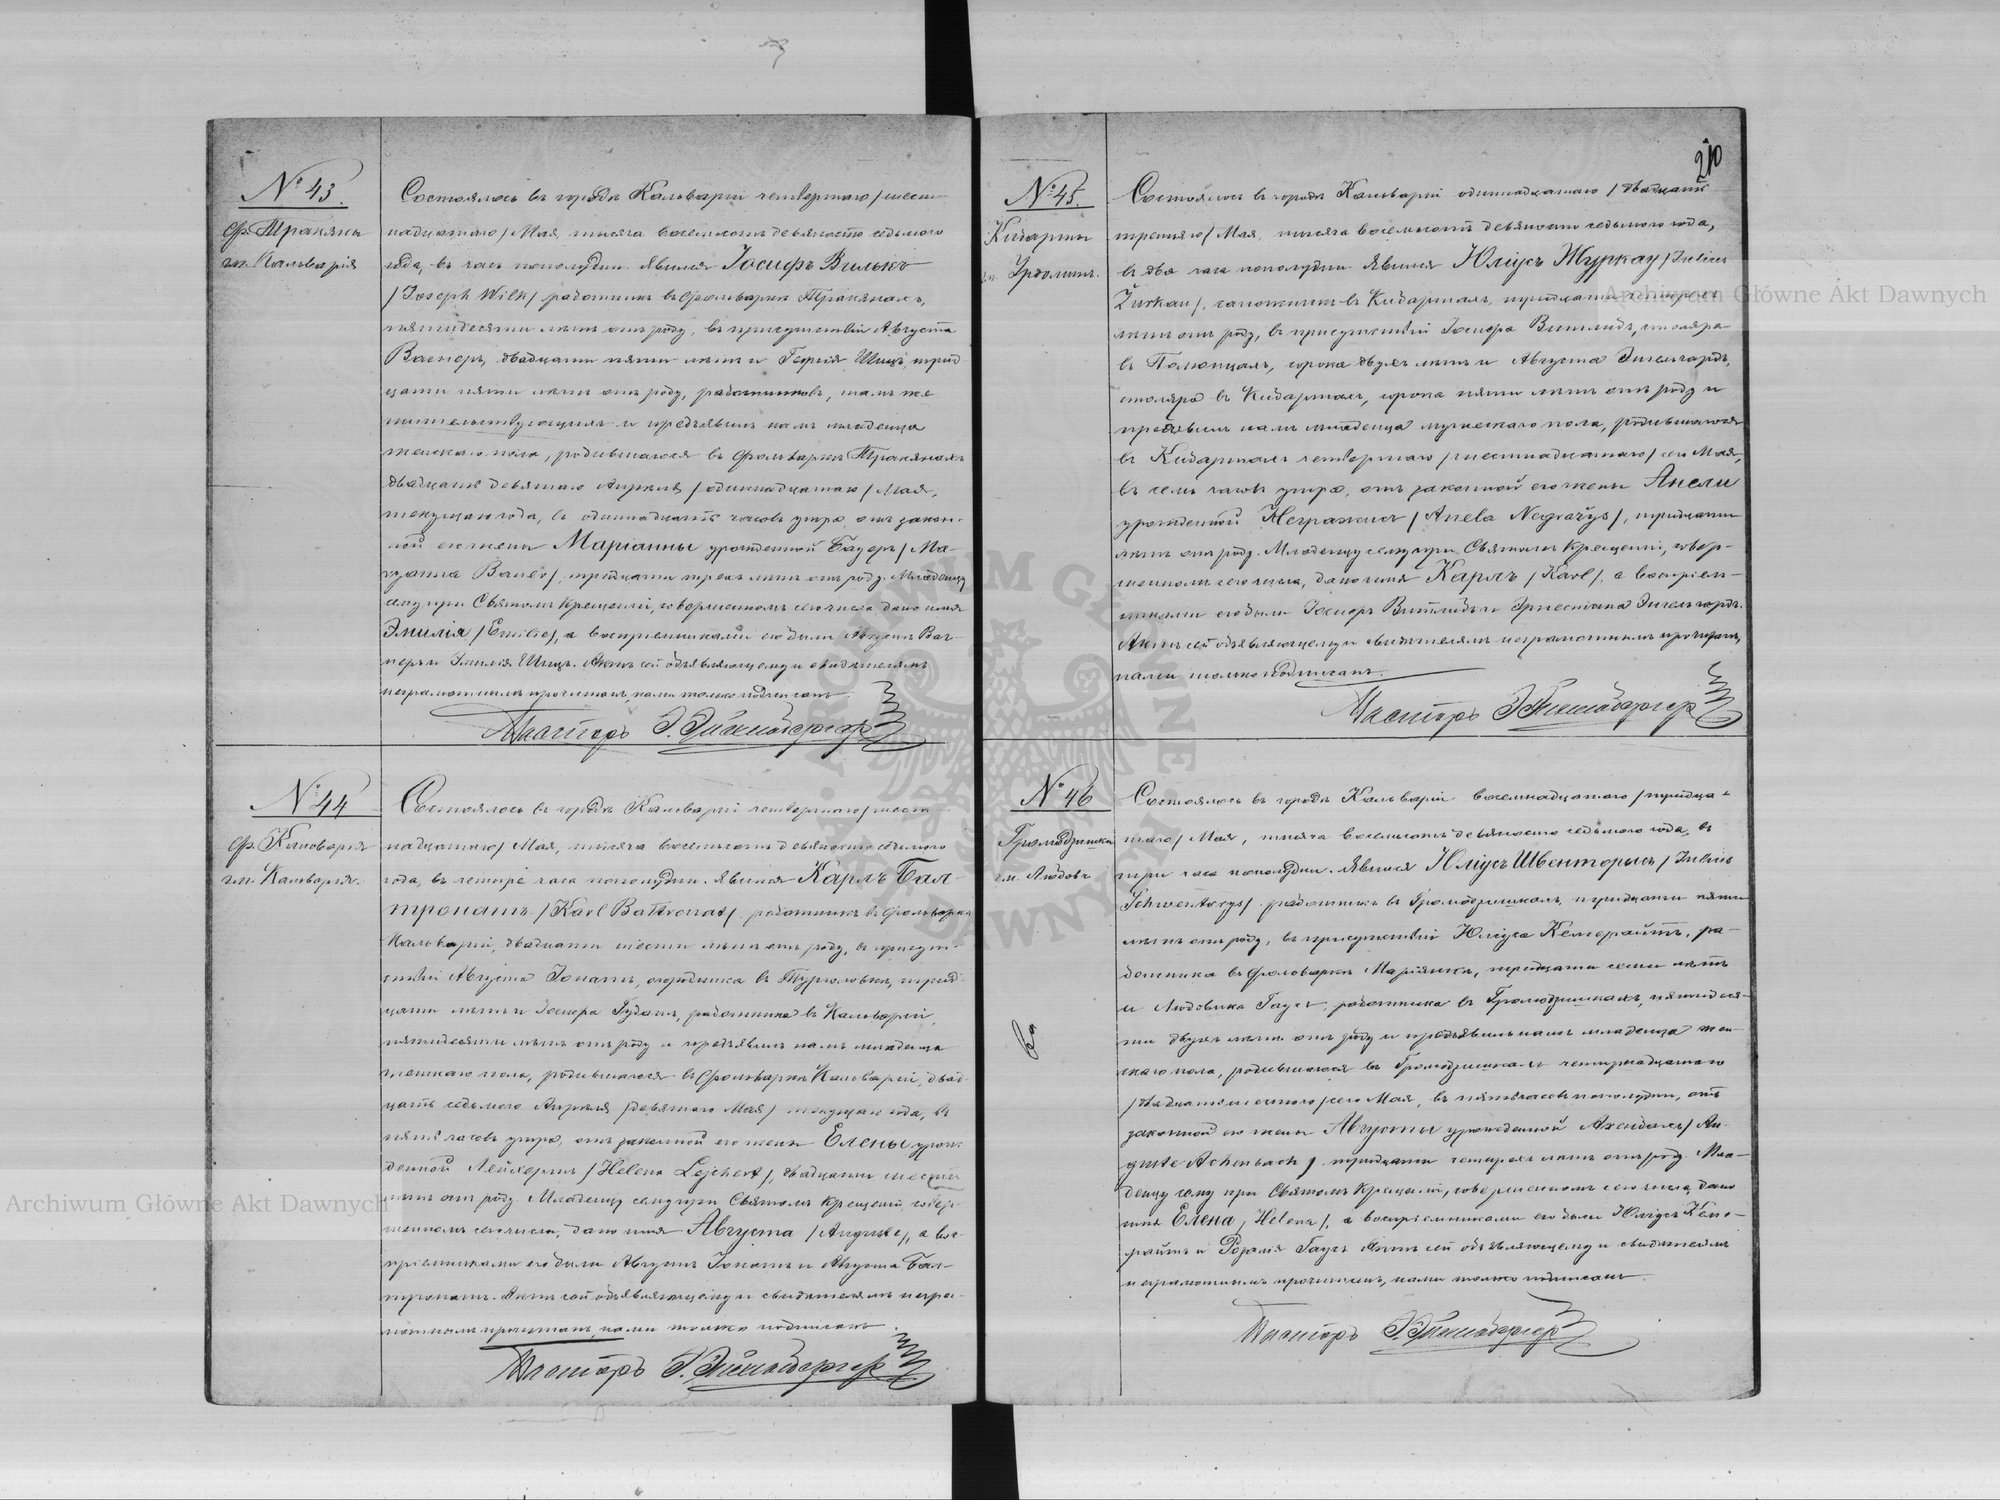 210
№ 43.
ф. Тракяны
гм. Кальварія
Состоялось въ городѣ Кальваріи четвертаго /шест-
надцатаго/ Мая, тысяча восемьсотъ девяносто седьмого
года, въ часъ пополудни. Явился Іосифъ Вилькъ
/Joseph Wilk/ работникъ въ фольваркѣ Тракянахъ,
пятидесяти лѣтъ отъ роду, въ присутствіи Августа
Вагнеръ, двадцати пяти лѣтъ и Шицъ, трид-
цати пяти лѣтъ отъ роду, работниковъ, тамъ же
жительствующихъ и предъявилъ намъ младенца
женскаго пола, родившагося въ фольваркѣ Тракянахъ
двадцать девятаго Апрѣля /одиннадцатаго/ Мая,
текущаго года, въ одиннадцать часовъ утра, отъ закон-
ной его жены Маріанны урожденной Бауеръ /Ma-
ryanna Bauer/, тридцати трехъ лѣтъ отъ роду. Младенцу
сему при Святомъ Крещеніи, совершенномъ сего числа, дано имя
Эмилія /Emilie/, а воспріемниками его были Августъ Ваг-
неръ и Эмилія Шицъ. Актъ сей объявляющему и свидѣтелямъ
неграмотнымъ прочитанъ, нами только подписанъ.
Пасторъ
№ 44
ф. Кальварія
гм. Кальварія.
Состоялось въ городѣ Кальваріи четвертаго /шест-
надцатаго/ Мая, тысяча восемьсотъ девяносто седьмого
года, въ четыре часа пополудни. Явился Карлъ Бал-
тронатъ /Karl Baltronat/ работникъ въ фольваркѣ
Кальваріи, двадцати шести лѣтъ отъ роду, въ присут-
ствіи Августа Іонатъ, огородника въ трид-
цати лѣтъ и Іосифа работника въ Кальваріи,
пятидесяти лѣтъ отъ роду и предъявилъ намъ младенца
женскаго пола, родившагося въ фольваркѣ Кальваріи, двад-
цать седьмого Апрѣля /девятаго Мая/ текущаго года, въ
пять часовъ утра, отъ законной его жены Елены урож-
денной Лейхертъ /Helena Lejchert/, двадцати шести
лѣтъ отъ роду. Младенцу сему при Святомъ Крещеніи, совер-
шенномъ сего числа, дано имя Августа /Auguste/, а вос-
пріемниками его были Августъ Іонатъ и Августа Бал-
тронатъ. Актъ сей объявляющему и свидѣтелямъ негра-
мотнымъ прочитанъ, нами только подписанъ.
Пасторъ
№ 45.
Кидарты
гм. Урдоминъ.
Состоялось въ городѣ Кальваріи одиннадцатаго /двадцать
третьяго/ Мая, тысяча восемьсотъ девяносто седьмого года,
въ два часа пополудни. Явился Юліусъ Журкау /Julius
Žurkau/, въ Кидартахъ, тридцати четырехъ
лѣтъ отъ роду, въ присутствіи Іосифа столяра
въ сорока двухъ лѣтъ и Августа Энгельгардъ,
столяра въ Кидартахъ, сорока пяти лѣтъ отъ роду и
предъявилъ намъ младенца мужескаго пола, родившагося
въ Кидартахъ четвертаго /шестнадцатаго/ сего Мая,
въ семь часовъ утра, отъ законной его жены Анели
урожденной Негражисъ /Anela Negražys/, тридцати
лѣтъ отъ роду. Младенцу сему при Святомъ Крещеніи, совер-
шенномъ сего числа, дано имя Карлъ /Karl/, а воспріем-
никами его были Іосифъ и Эрнестина Энгельгардъ.
Актъ сей объявляющему и свидѣтелямъ неграмотнымъ прочитанъ,
нами только подписанъ.
Пасторъ
№ 46
Громадзишки
гм. Любовъ
Состоялось въ городѣ Кальваріи восемнадцатаго /тридца-
таго/ Мая, тысяча восемьсотъ девяносто седьмого года, въ
три часа пополудни. Явился Юліусъ Швенторысъ /Julius
Schwentorys/ работникъ въ Громадзишкахъ, тридцати пяти
лѣтъ отъ роду, въ присутствіи Юліуса ра-
ботника въ фольваркѣ тридцати семи лѣтъ
и Людовика Гаусъ, работника въ Громадзишкахъ, пятидеся-
ти двухъ лѣтъ отъ роду и предъявилъ намъ младенца жен-
скаго пола, родившагося въ Громадзишкахъ четырнадцатаго
/двадцать шестого/ сего Мая, въ пять часовъ пополудни, отъ
законной его жены Августы урожденной Ахенбахъ /Au-
guste Achenbach/ тридцати четырехъ лѣтъ отъ роду. Мла-
денцу сему при Святомъ Крещеніи, совершенномъ сего числа, дано
имя Елена /Helena/, а воспріемниками его были Юліусъ
и Розалія Гаусъ. Актъ сей объявляющему и свидѣтелямъ
неграмотнымъ прочитанъ, нами только подписанъ.
Пасторъ
Archiwum Główne Akt Dawnych
Archiwum Główne Akt Dawnych
ARCHIWUM GŁÓWNE AKT DAWNYCH